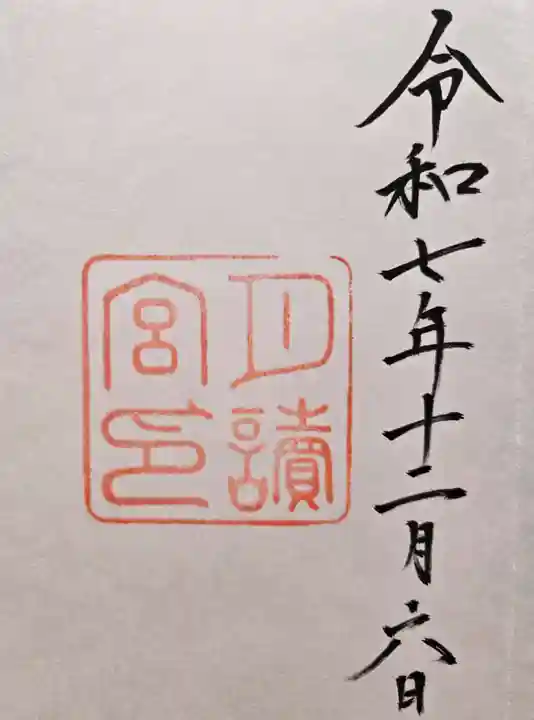 令和七年十二月六日
月讀
宮印